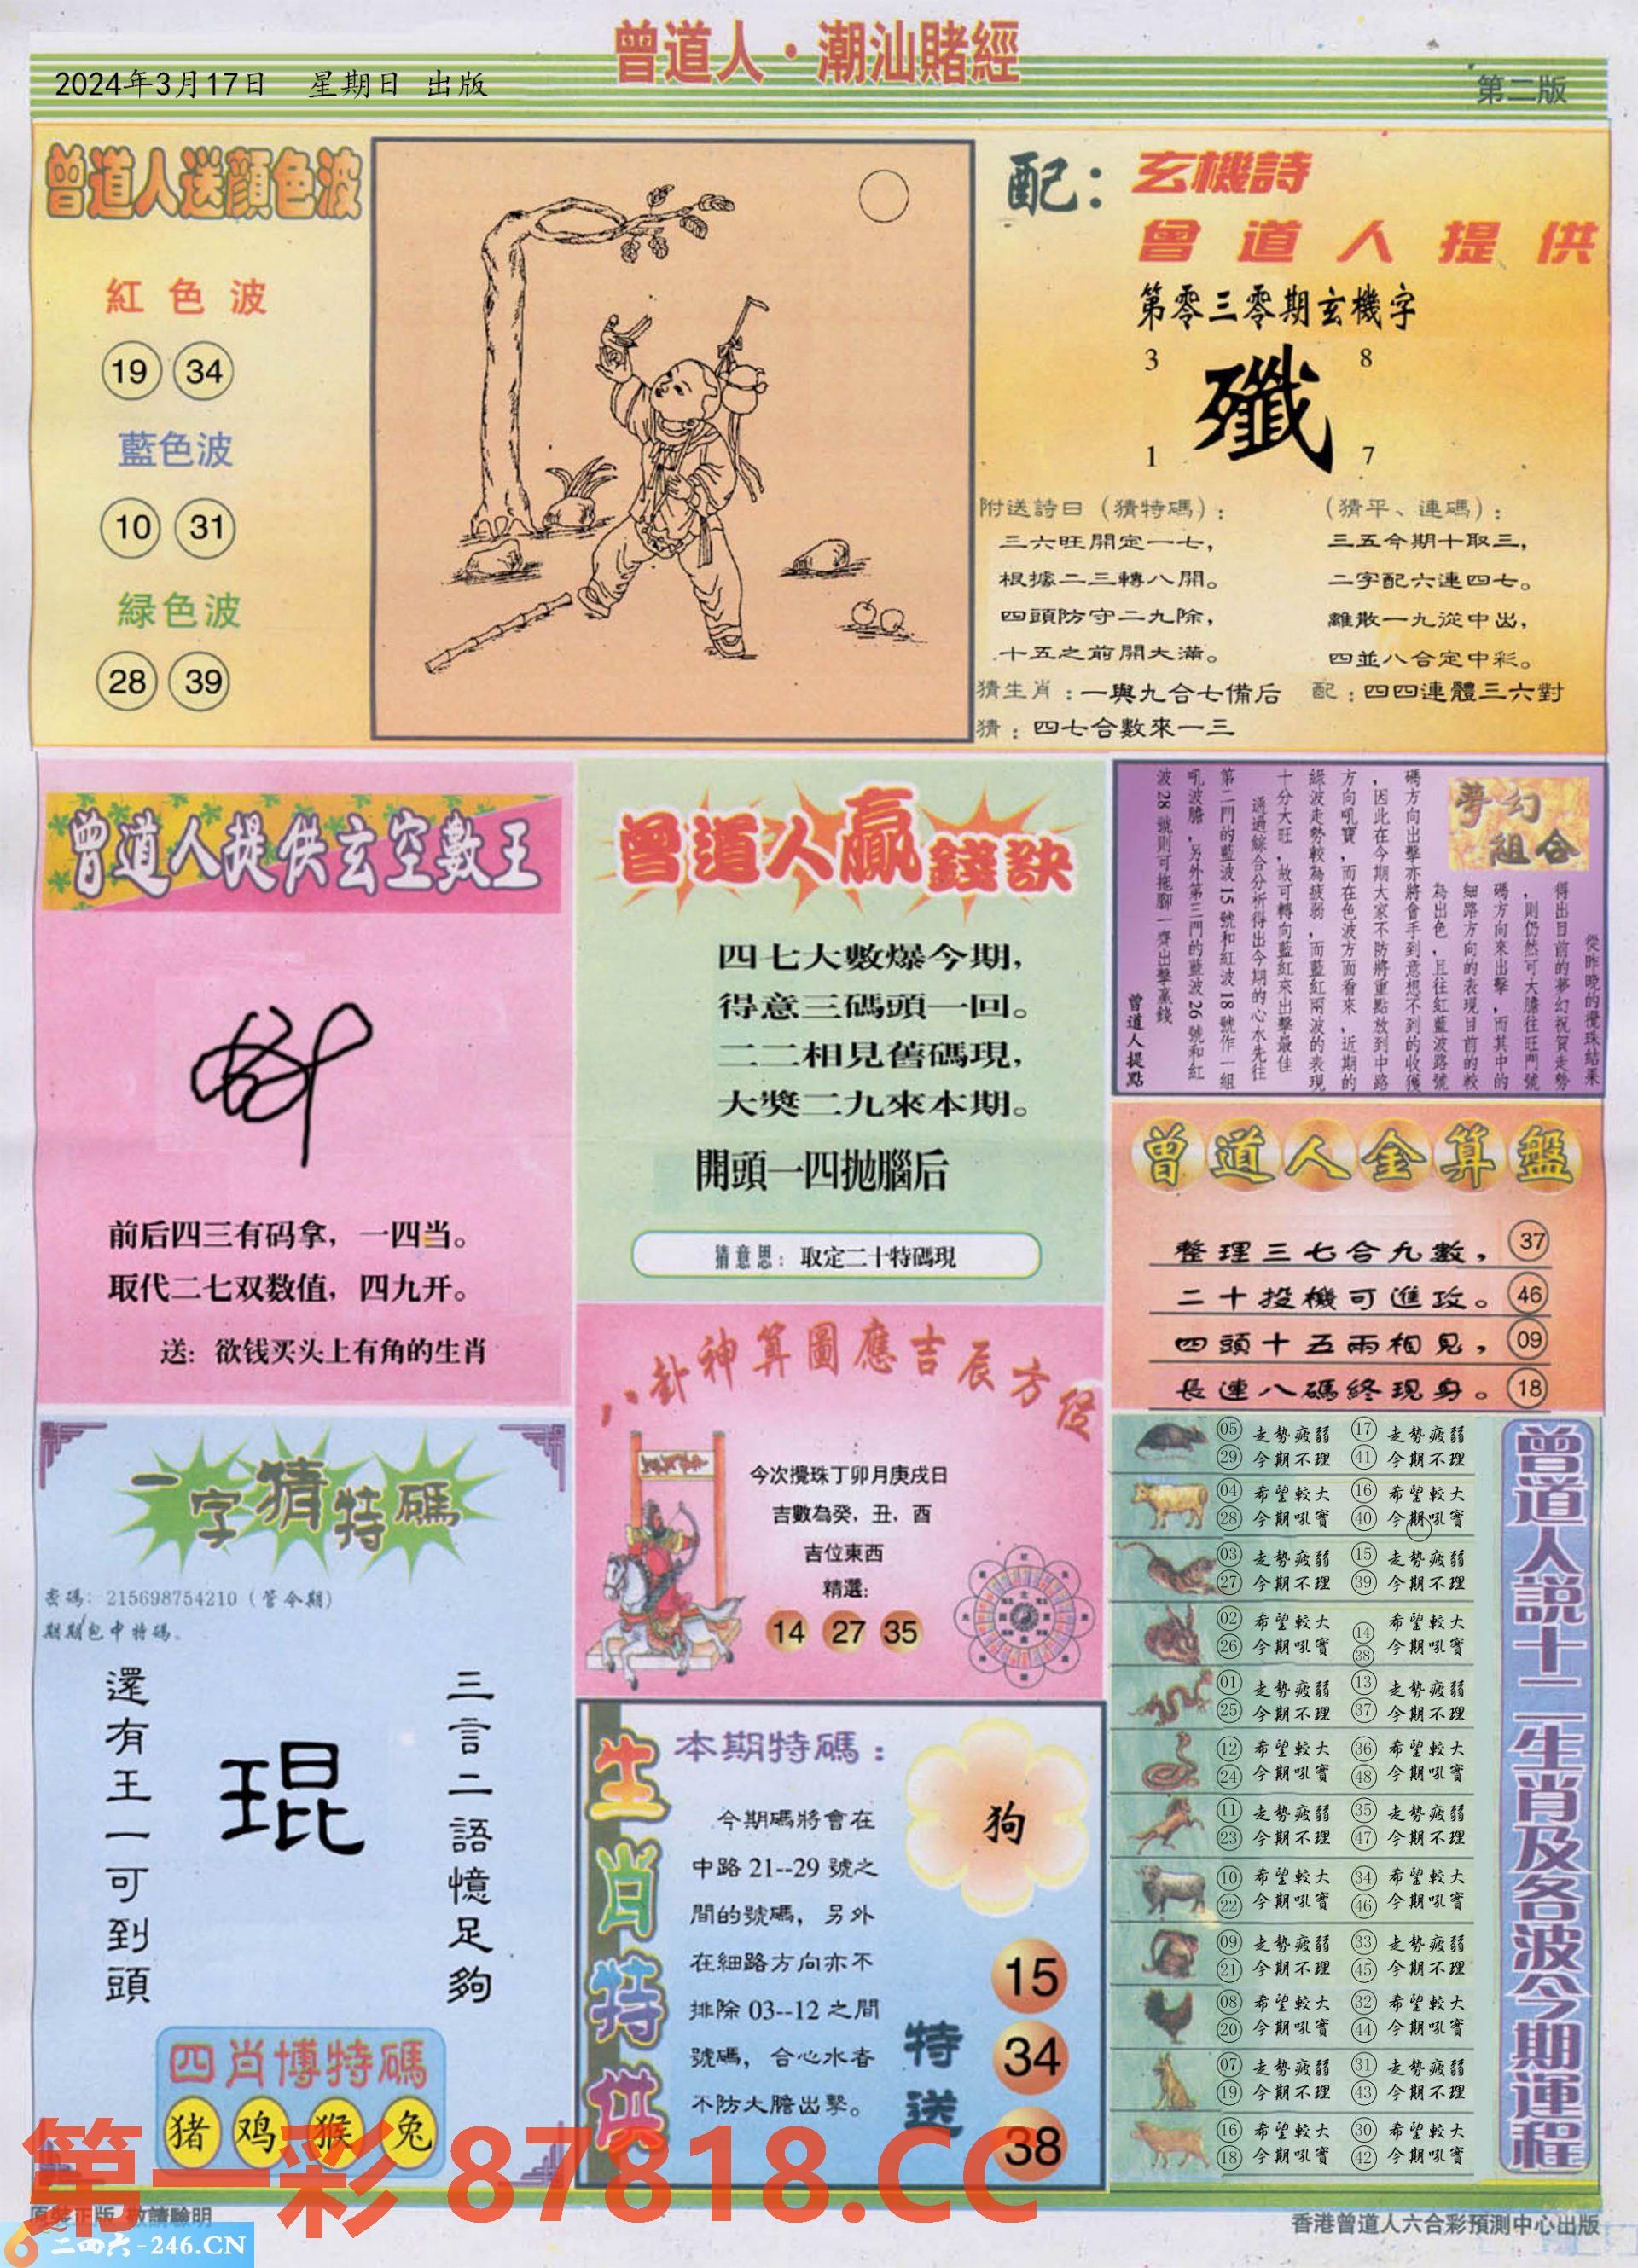 曾道人·潮汕賭經
2024年3月17日 星期日 出版
第二版
曾道人送顔色波
紅色波
19 34
藍色波
10 31
緑色波
28 39
配：玄機詩
曾道人提供
第零三零期玄機字
3 8
殲
1 7
附送詩曰（猜特碼）：
三六旺開定一七，
根據二三轉八開。
四頭防守二九除，
十五之前開大滿。
（猜平、連碼）：
三五今期十取三，
二字配六連四七。
離散一九從中出，
四並八合定中彩。
猜生肖：一與九合七備后 配：四四連體三六對
猜：四七合數來一三
曾道人提供玄空數王
前后四三有码拿，一四当。
取代二七双数值，四九开。
送：欲钱买头上有角的生肖
曾道人贏錢訣
四七大數爆今期，
得意三碼頭一回。
二二相見舊碼現，
大獎二九來本期。
開頭一四拋腦后
猜意思：取定二十特碼現
夢幻
組合
從昨晚的攪珠結果
得出目前的夢幻祝賀走勢
，則仍然可大膽往旺門號
碼方向來出擊，而其中的
細路方向的表現目前的較
為出色，且往紅藍波路號
碼方向出擊亦將會手到意想不到的收獲
，因此在今期大家不防將重點放到中路
方向吼寶，而在色波方面看來，近期的
綠波走勢較為疲弱，而藍紅兩波的表現
十分大旺，故可轉向藍紅來出擊最佳
通過綜合分析得出今期的心水先往
第二門的藍波15號和紅波18號作一組
吼波膽，另外第三門的藍波26號和紅
波28號則可拖腳一齊出擊贏錢
曾道人提點
曾道人金算盤
整理三七合九數， 37
二十投機可進攻。 46
四頭十五兩相見， 09
長連八碼終現身。 18
八卦神算圖應吉辰方位
今次攪珠丁卯月庚戌日
吉數為癸，丑，酉
吉位東西
精選：
14 27 35
一字猜特碼
密碼：215698754210（管令期）
期期包中特碼。
三言二語憶足夠
琨
還有王一可到頭
四肖博特碼
猪 鸡 猴 兔
生肖特供
本期特碼：
今期碼將會在
中路21--29號之
間的號碼，另外
在細路方向亦不
排除03--12之間
號碼，合心水者
不防大膽出擊。
狗
特送
15
34
38
曾道人說十二生肖及各波今期運程
05 走勢疲弱 17 走勢疲弱
29 今期不理 41 今期不理
04 希望較大 16 希望較大
28 今期吼實 40 今期吼實
03 走勢疲弱 15 走勢疲弱
27 今期不理 39 今期不理
02 希望較大 14 希望較大
26 今期吼實 38 今期吼實
01 走勢疲弱 13 走勢疲弱
25 今期不理 37 今期不理
12 希望較大 36 希望較大
24 今期吼實 48 今期吼實
11 走勢疲弱 35 走勢疲弱
23 今期不理 47 今期不理
10 希望較大 34 希望較大
22 今期吼實 46 今期吼實
09 走勢疲弱 33 走勢疲弱
21 今期不理 45 今期不理
08 希望較大 32 希望較大
20 今期吼實 44 今期吼實
07 走勢疲弱 31 走勢疲弱
19 今期不理 43 今期不理
16 希望較大 30 希望較大
18 今期吼實 42 今期吼實
第一彩 87818.CC
原裝正版 敬請驗明
香港曾道人六合彩預測中心出版
二四六-246.CN